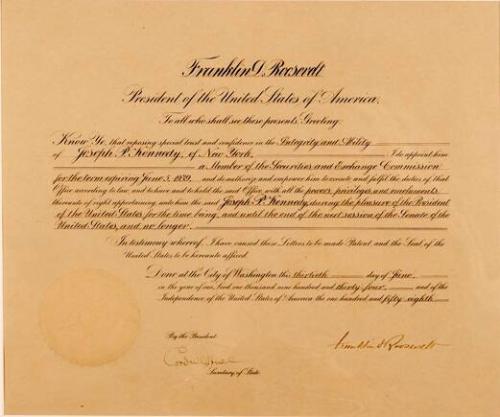 Franklin D. Roosevelt
President of the United States of America.
To all who shall see these presents, Greeting:
Know Ye, that reposing special trust and confidence in the Integrity and Ability
of Joseph P. Kennedy, of New York, I do appoint him
a Member of the Securities and Exchange Commission
for the term expiring June 5, 1939, and do authorize and empower him to execute and fulfil the duties of that
Office according to law, and to have and to hold the said Office, with all the powers, privileges, and emoluments
thereunto of right appertaining, unto him the said Joseph P. Kennedy, during the pleasure of the President
of the United States for the time being, and until the end of the next session of the Senate of the
United States, and no longer.
In testimony whereof, I have caused these Letters to be made Patent and the Seal of the
United States to be hereunto affixed.
Done at the City of Washington this thirtieth day of June,
in the year of our Lord one thousand nine hundred and thirty four, and of the
Independence of the United States of America the one hundred and fifty eighth.
Franklin D Roosevelt
By the President:
Cordell Hull
Secretary of State.